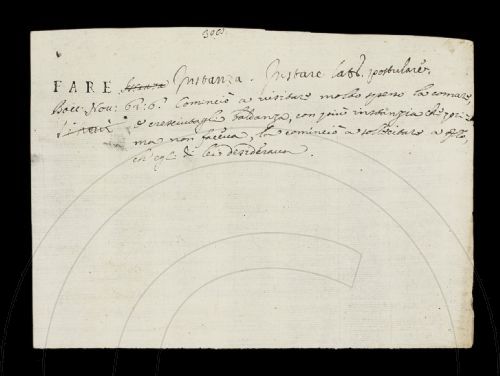 3968.
FARE Instanza. Instare lat. postulare.
Bocc. Nov: 63: 6. Cominciò a visitare molto spesso la comare,
e cresciutagli baldanza, con più instanzia che pri=
ma non faceva, la cominciò a sollecitare a
ch'egli di lei desiderava.